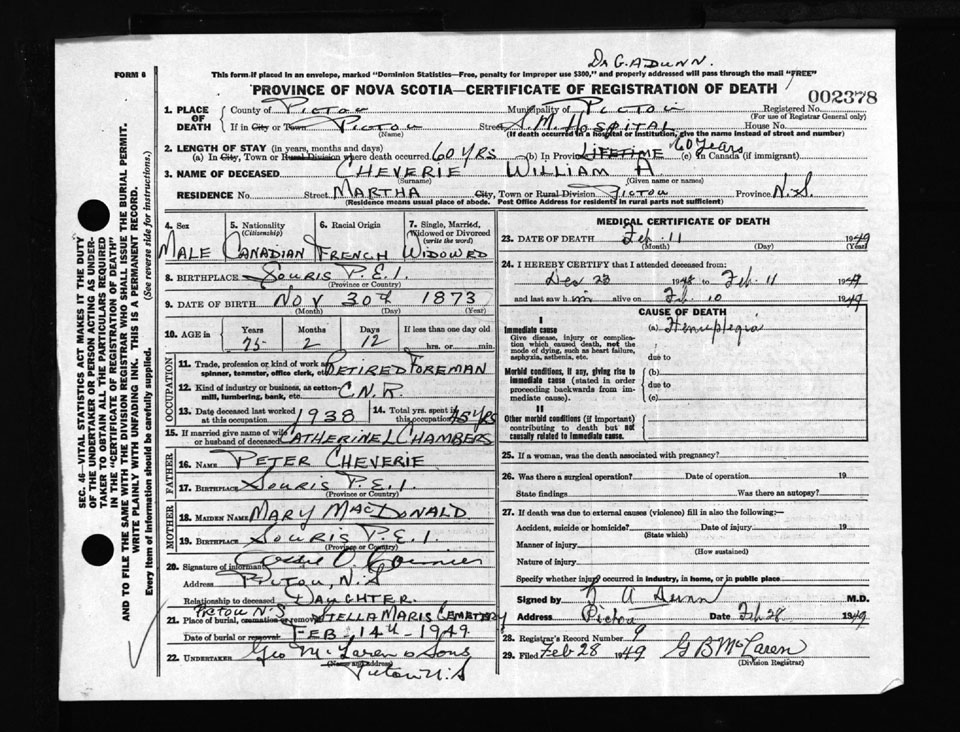 Dr G. A DUNN.
FORM 6
This form if placed in an envelope, marked "Dominion Statistics—Free, penalty for improper use $300," and properly addressed will pass through the mail "FREE"
PROVINCE OF NOVA SCOTIA—CERTIFICATE OF REGISTRATION OF DEATH
002378
1. PLACE OF DEATH
County of PICTOU Municipality of PICTOU Registered No.
(For use of Registrar General only)
If in City or Town PICTOU Street S. M. HOSPITAL House No.
(Name) (If death occurred in a hospital or institution, give the name instead of street and number)
2. LENGTH OF STAY (in years, months and days)
(a) In City, Town or Rural Division where death occurred 60 YRS (b) In Province LIFETIME 60 Years (c) In Canada (if immigrant)
3. NAME OF DECEASED CHEVERIE WILLIAM A
(Surname) (Given name or names)
RESIDENCE No. Street MARTHA City, Town or Rural Division PICTOU Province N.S.
(Residence means usual place of abode. Post Office Address for residents in rural parts not sufficient)
4. Sex 5. Nationality (Citizenship) 6. Racial Origin 7. Single, Married, Widowed or Divorced (write the word)
MALE CANADIAN FRENCH WIDOWED
8. BIRTHPLACE SOURIS P.E.I.
(Province or Country)
9. DATE OF BIRTH NOV 30th 1873
(Month) (Day) (Year)
10. AGE in Years Months Days If less than one day old
75 2 12 hrs. or min.
OCCUPATION
11. Trade, profession or kind of work as spinner, teamster, office clerk, etc. RETIRED FOREMAN
12. Kind of industry or business, as cotton-mill, lumbering, bank, etc. C.N.R.
13. Date deceased last worked at this occupation 1938 14. Total yrs. spent in this occupation 45 YRS
15. If married give name of wife or husband of deceased CATHERINE L CHAMBERS
FATHER
16. NAME PETER CHEVERIE
17. BIRTHPLACE SOURIS P.E.I.
(Province or Country)
MOTHER
18. MAIDEN NAME MARY MACDONALD
19. BIRTHPLACE SOURIS P.E.I.
(Province or Country)
20. Signature of informant
Address PICTOU, N.S
Relationship to deceased DAUGHTER.
PICTOU N.S
21. Place of burial, cremation or removal STELLA MARIS CEMETARY
Date of burial or removal FEB-14th-1949
22. UNDERTAKER Geo McLaren & Sons
(Name and address)
Pictou N.S
MEDICAL CERTIFICATE OF DEATH
23. DATE OF DEATH Feb. 11 1949
(Month) (Day)
24. I HEREBY CERTIFY that I attended deceased from:
Dec 23 1948 to Feb. 11 1949
and last saw him alive on Feb 10 1949
CAUSE OF DEATH
I
Immediate cause (a) Hemiplegia
Give disease, injury or complication which caused death, not the mode of dying, such as heart failure, asphyxia, asthenia, etc.
due to
Morbid conditions, if any, giving rise to immediate cause (stated in order proceeding backwards from immediate cause).
(b)
due to
(c)
II
Other morbid conditions (if important) contributing to death but not causally related to immediate cause.
25. If a woman, was the death associated with pregnancy?
26. Was there a surgical operation? Date of operation 19
State findings Was there an autopsy?
27. If death was due to external causes (violence) fill in also the following:—
Accident, suicide or homicide? Date of injury 19
(State which)
Manner of injury
(How sustained)
Nature of injury
Specify whether injury occurred in industry, in home, or in public place
Signed by G A Dunn M.D.
Address Pictou Date Feb. 28 1949
28. Registrar's Record Number 9
29. Filed Feb 28 1949 G B McLaren
(Division Registrar)
SEC. 46—VITAL STATISTICS ACT MAKES IT THE DUTY
OF THE UNDERTAKER OR PERSON ACTING AS UNDER-
TAKER TO OBTAIN ALL THE PARTICULARS REQUIRED
IN THE "CERTIFICATE OF REGISTRATION OF DEATH"
AND TO FILE THE SAME WITH THE DIVISION REGISTRAR WHO SHALL ISSUE THE BURIAL PERMIT.
WRITE PLAINLY WITH UNFADING INK. THIS IS A PERMANENT RECORD.
Every item of information should be carefully supplied. (See reverse side for instructions.)